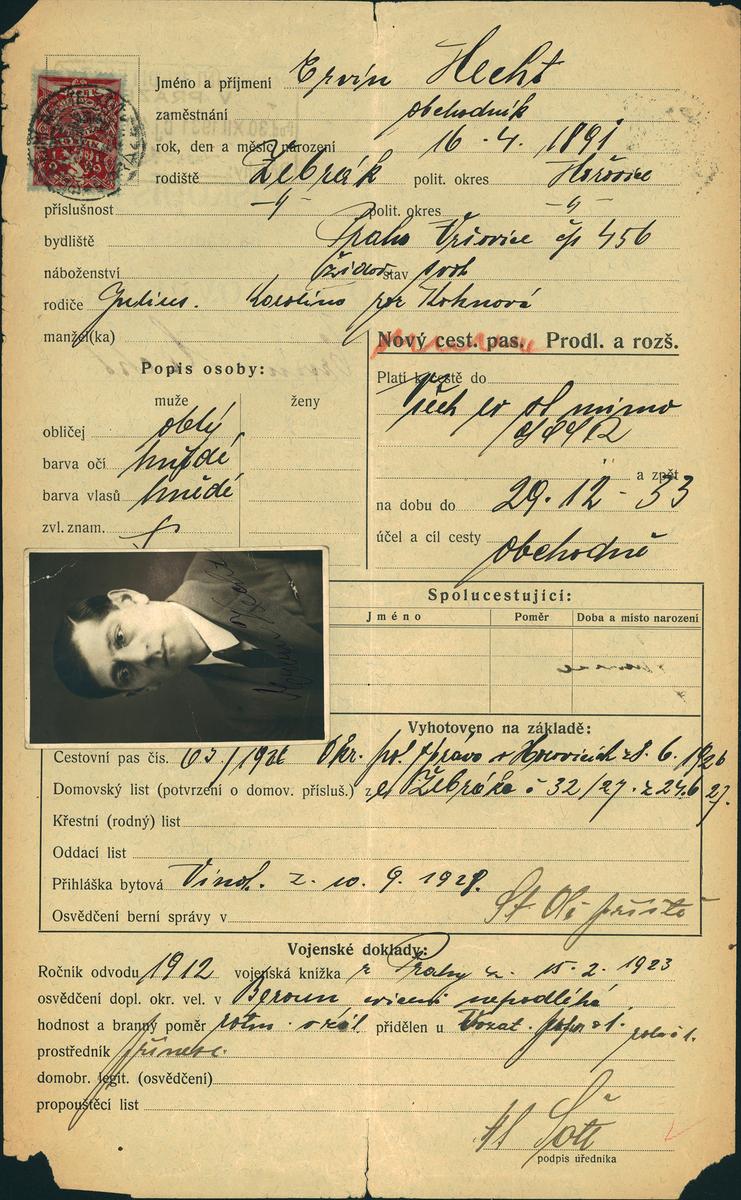 Jméno a příjmení Ervín Hecht
zaměstnání obchodník
rok, den a měsíc narození 16 - 4. 1891
rodiště Žebrák polit. okres Hořovice
příslušnost -„- polit. okres -„-
bydliště Praha Vršovice čp 456
náboženství židov. stav svob
rodiče Julius. Karolina Kohnová
manžel(ka)
Nový cest. pas. Prodl. a rozš.
Popis osoby:
muže ženy
obličej oblý
barva očí hnědé
barva vlasů hnědé
zvl. znam.
Platí k cestě do
všech mimo
a zpět
na dobu do 29. 12 - 33
účel a cíl cesty obchodně
Spolucestující:
Jméno Poměr Doba a místo narození
Vyhotoveno na základě:
Cestovní pas čís. 63/1926 Okr. pol. správa v Hořovicích z 8. 6. 1926
Domovský list (potvrzení o domov. přísluš.) z Žebráka č 32/27. z 24.6 27.
Křestní (rodný) list
Oddací list
Přihláška bytová Vinoh. z. 10. 9. 1928.
Osvědčení berní správy v
Vojenské doklady:
Ročník odvodu 1912 vojenská kniżka z Prahy z. 15. 2. 1923
osvědčení dopl. okr. vel. v Beroun cvičení nepodléhá
hodnost a branný poměr rotm. v zál. přidělen u Vozat.
prostředník
domobr. legit. (osvědčení)
propouštěcí list
podpis úředníka